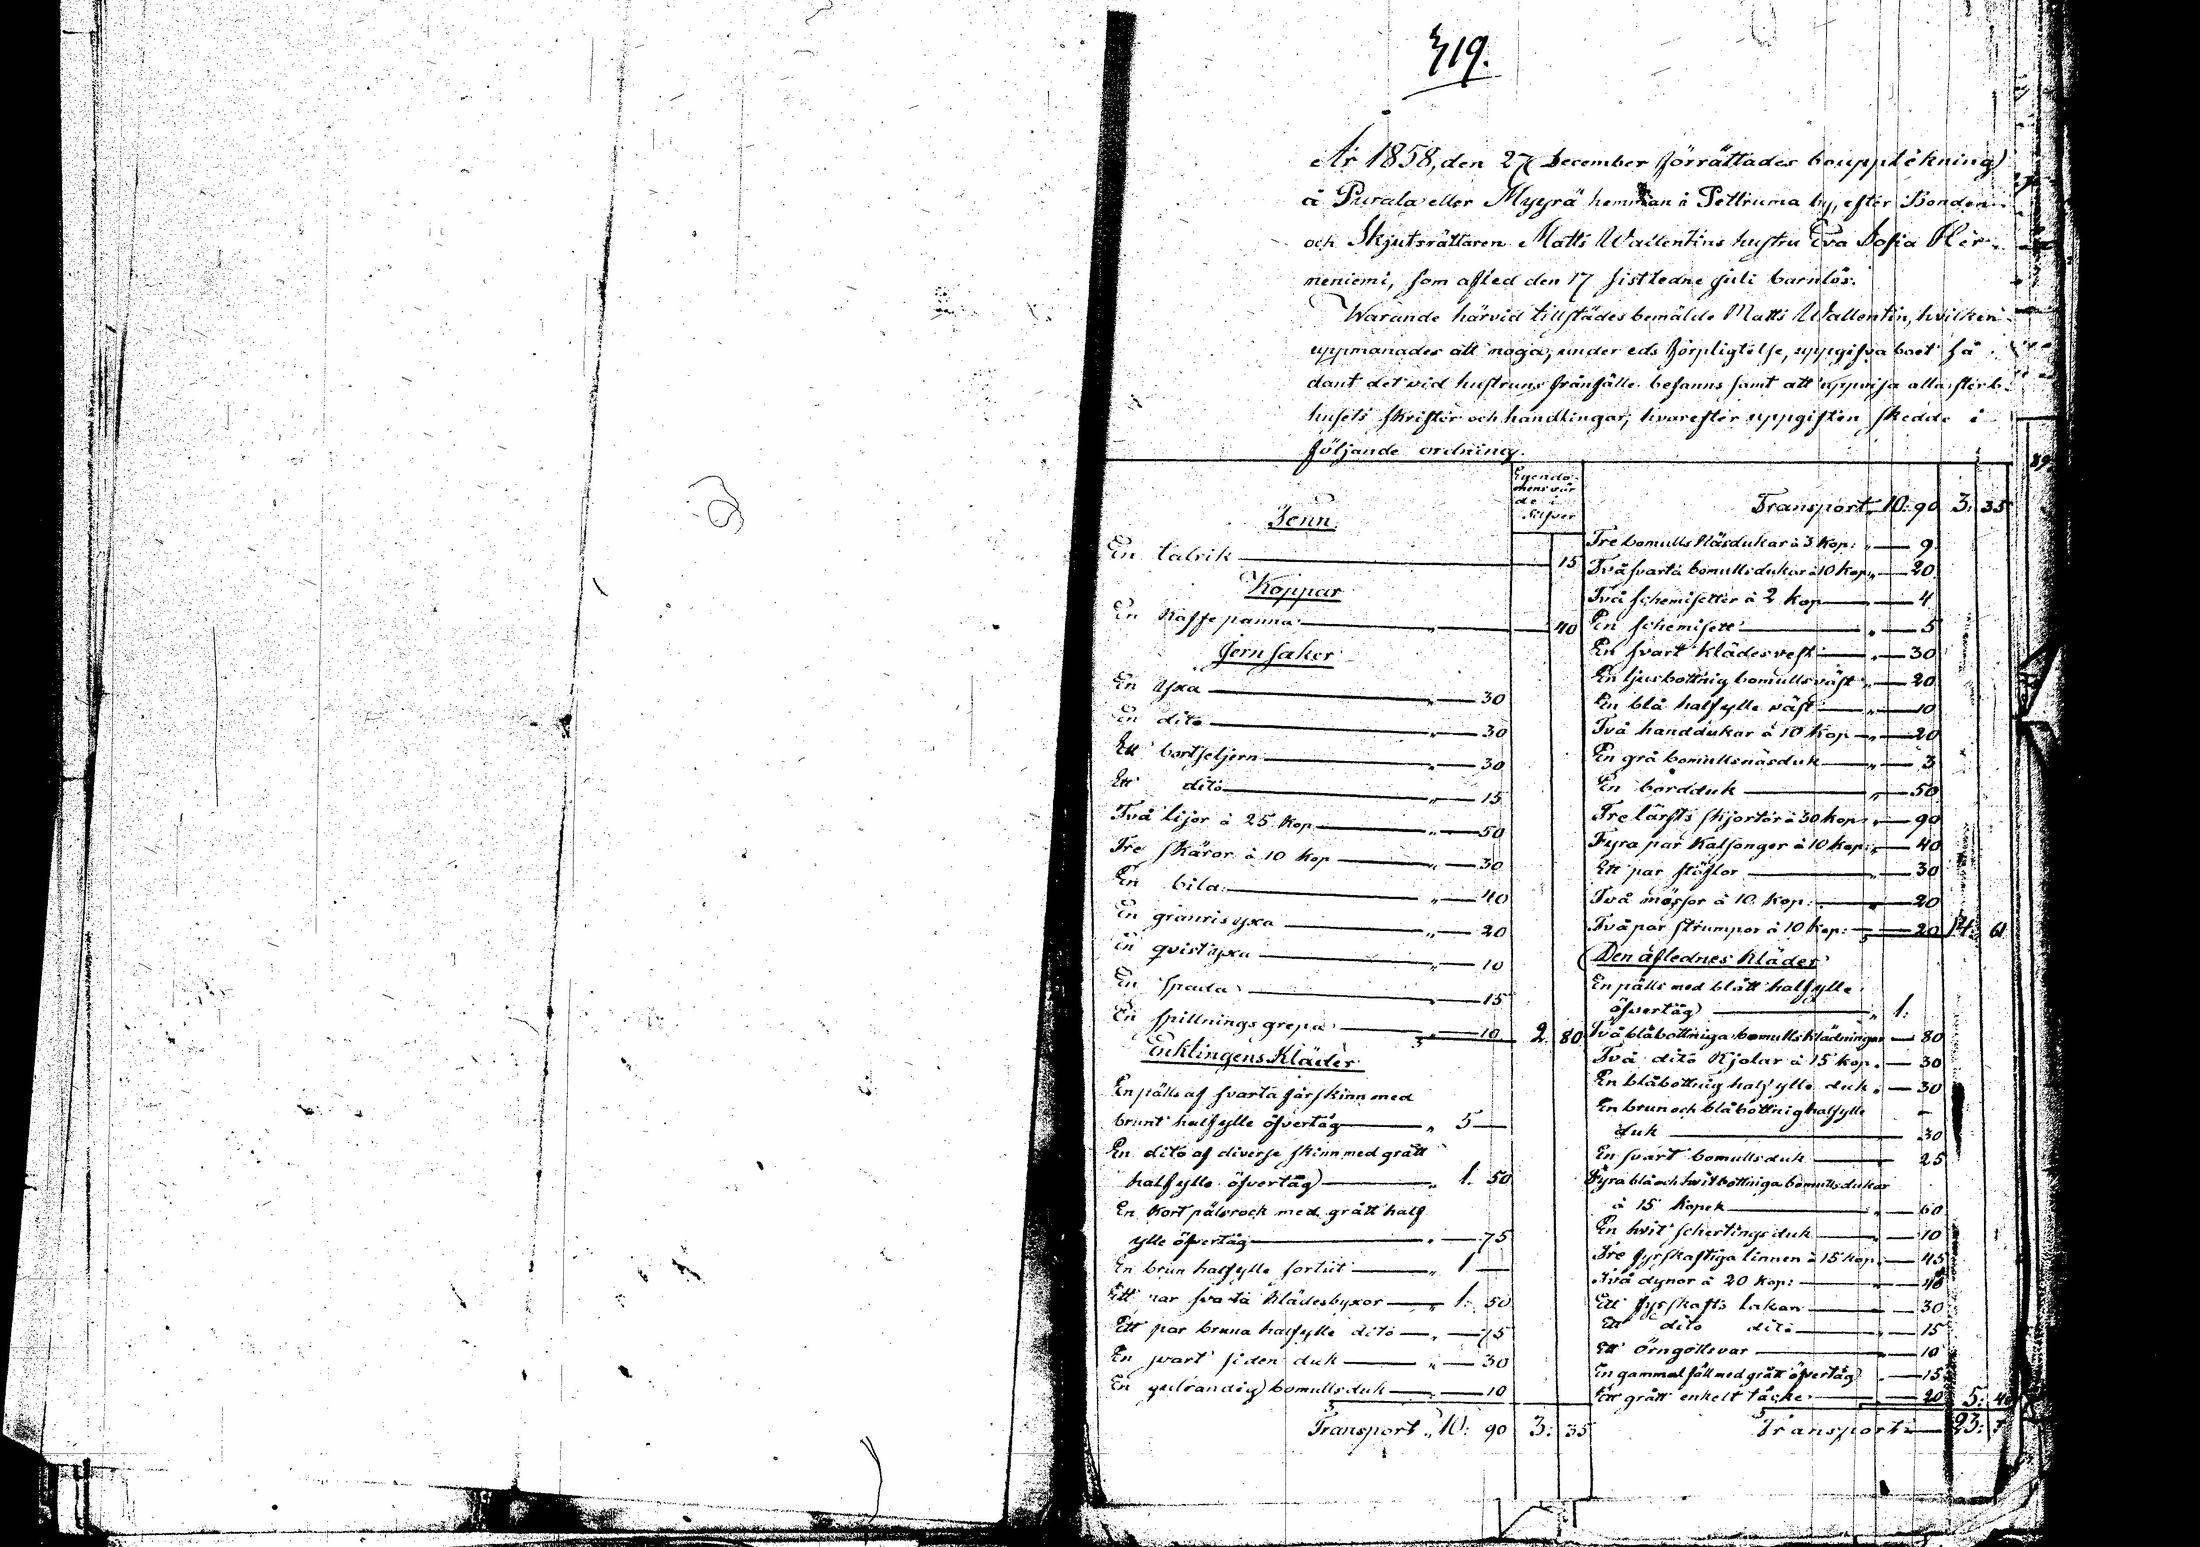 § 19.
År 1858, den 27 December förrättades bouppteckning
å Purala eller Myyrä hemman i Pettruma by, efter Bonden
och Skjutsrättaren Matts Wallentins hustru Eva Sofia
meniemi, som afled den 17 sistledne juli barnlös.
Warande härvid tillstädes bemälde Matts Wallentin, hvilken
uppmanades att noga, under eds förpligtelse, uppgifva boet så
dant det vid hustruns frånfälle befanns samt att uppvisa alla sterb
husets skrifter och handlingar, hvarefter uppgiften skedde i
följande ordning.
Egendo-
mens vär
de i
Silfver
Tenn.
En talrik 15
Koppar
En Kaffepanna „ 40
Jernsaker
En Yxa „ 30
En dito 30
Ett bortseljern „ 30
Ett dito „ 15
Två lijor à 25 Kop „ 50
Tre skäror à 10 Kop „ 30
En bila „ 40
En granrisyxa „ 20
En qvistyxa „ 10
En spada „ 15
En spillningsgrepa „ 10 2 80
Enklingens Kläder
En päls af svarta fårskinn med
brunt halfylle öfvertåg „ 5
En dito af diverse skinn med grått
halfylle öfvertåg „ 1. 50
En Kort pälsrock med grått half
ylle öfvertåg „ 75
En brun halfylle sortut „ 1
Ett par svarta Klädesbyxor „ 1: 50
Ett par bruna halfylle dito „ 75
En svart siden duk „ 30
En gulrandig bomullsduk „ 10
Transport „ 10: 90 3: 35
Transport 10: 90 3: 35
Tre bomulls Näsdukar à 3 Kop: „ 9
Två svarta bomullsdukar à 10 Kop „ 20
Två schemisetter à 2 Kop „ 4
En schemisett „ 5
En svart klädesvest „ 30
En ljusbottnig bomullsväst „ 20
En blå halfylle väst „ 10
Två handdukar à 10 Kop „ 20
En grå bomullsnäsduk „ 3
En bordduk „ 50
Tre lärfts skjortor à 30 kop „ 90
Fyra par Kalsonger à 10 Kop: „ 40
Ett par stöflor 30
Två mössor à 10 Kop: „ 20
Två par strumpor à 10 Kop: 20 14: 61
Den aflednes Kläder
En päls med blått halfylle
öfvertåg „ 1:
Två blåbottniga bomullsklädningar 80
Två dito Kjolar à 15 Kop. 30
En blåbottnig halfylle duk „ 30
En brun och blåbottnig halfylle
duk 30
En svart bomullsduk 25
Fyra blå och hvitbottniga bomullsdukar
à 15 Kopek „ 60
En hvit schertingsduk „ 10
Tre fyrskaftiga linnen à 15 Kop: 45
Två dynor à 20 Kop: 40
Ett fyrskafts lakan 30
Ett dito dito 15
Ett örngottsvar 10
En gammal fäll med grått öfvertåg 15
Ett grått enkelt täcke 20 5: 40
Transport 23: